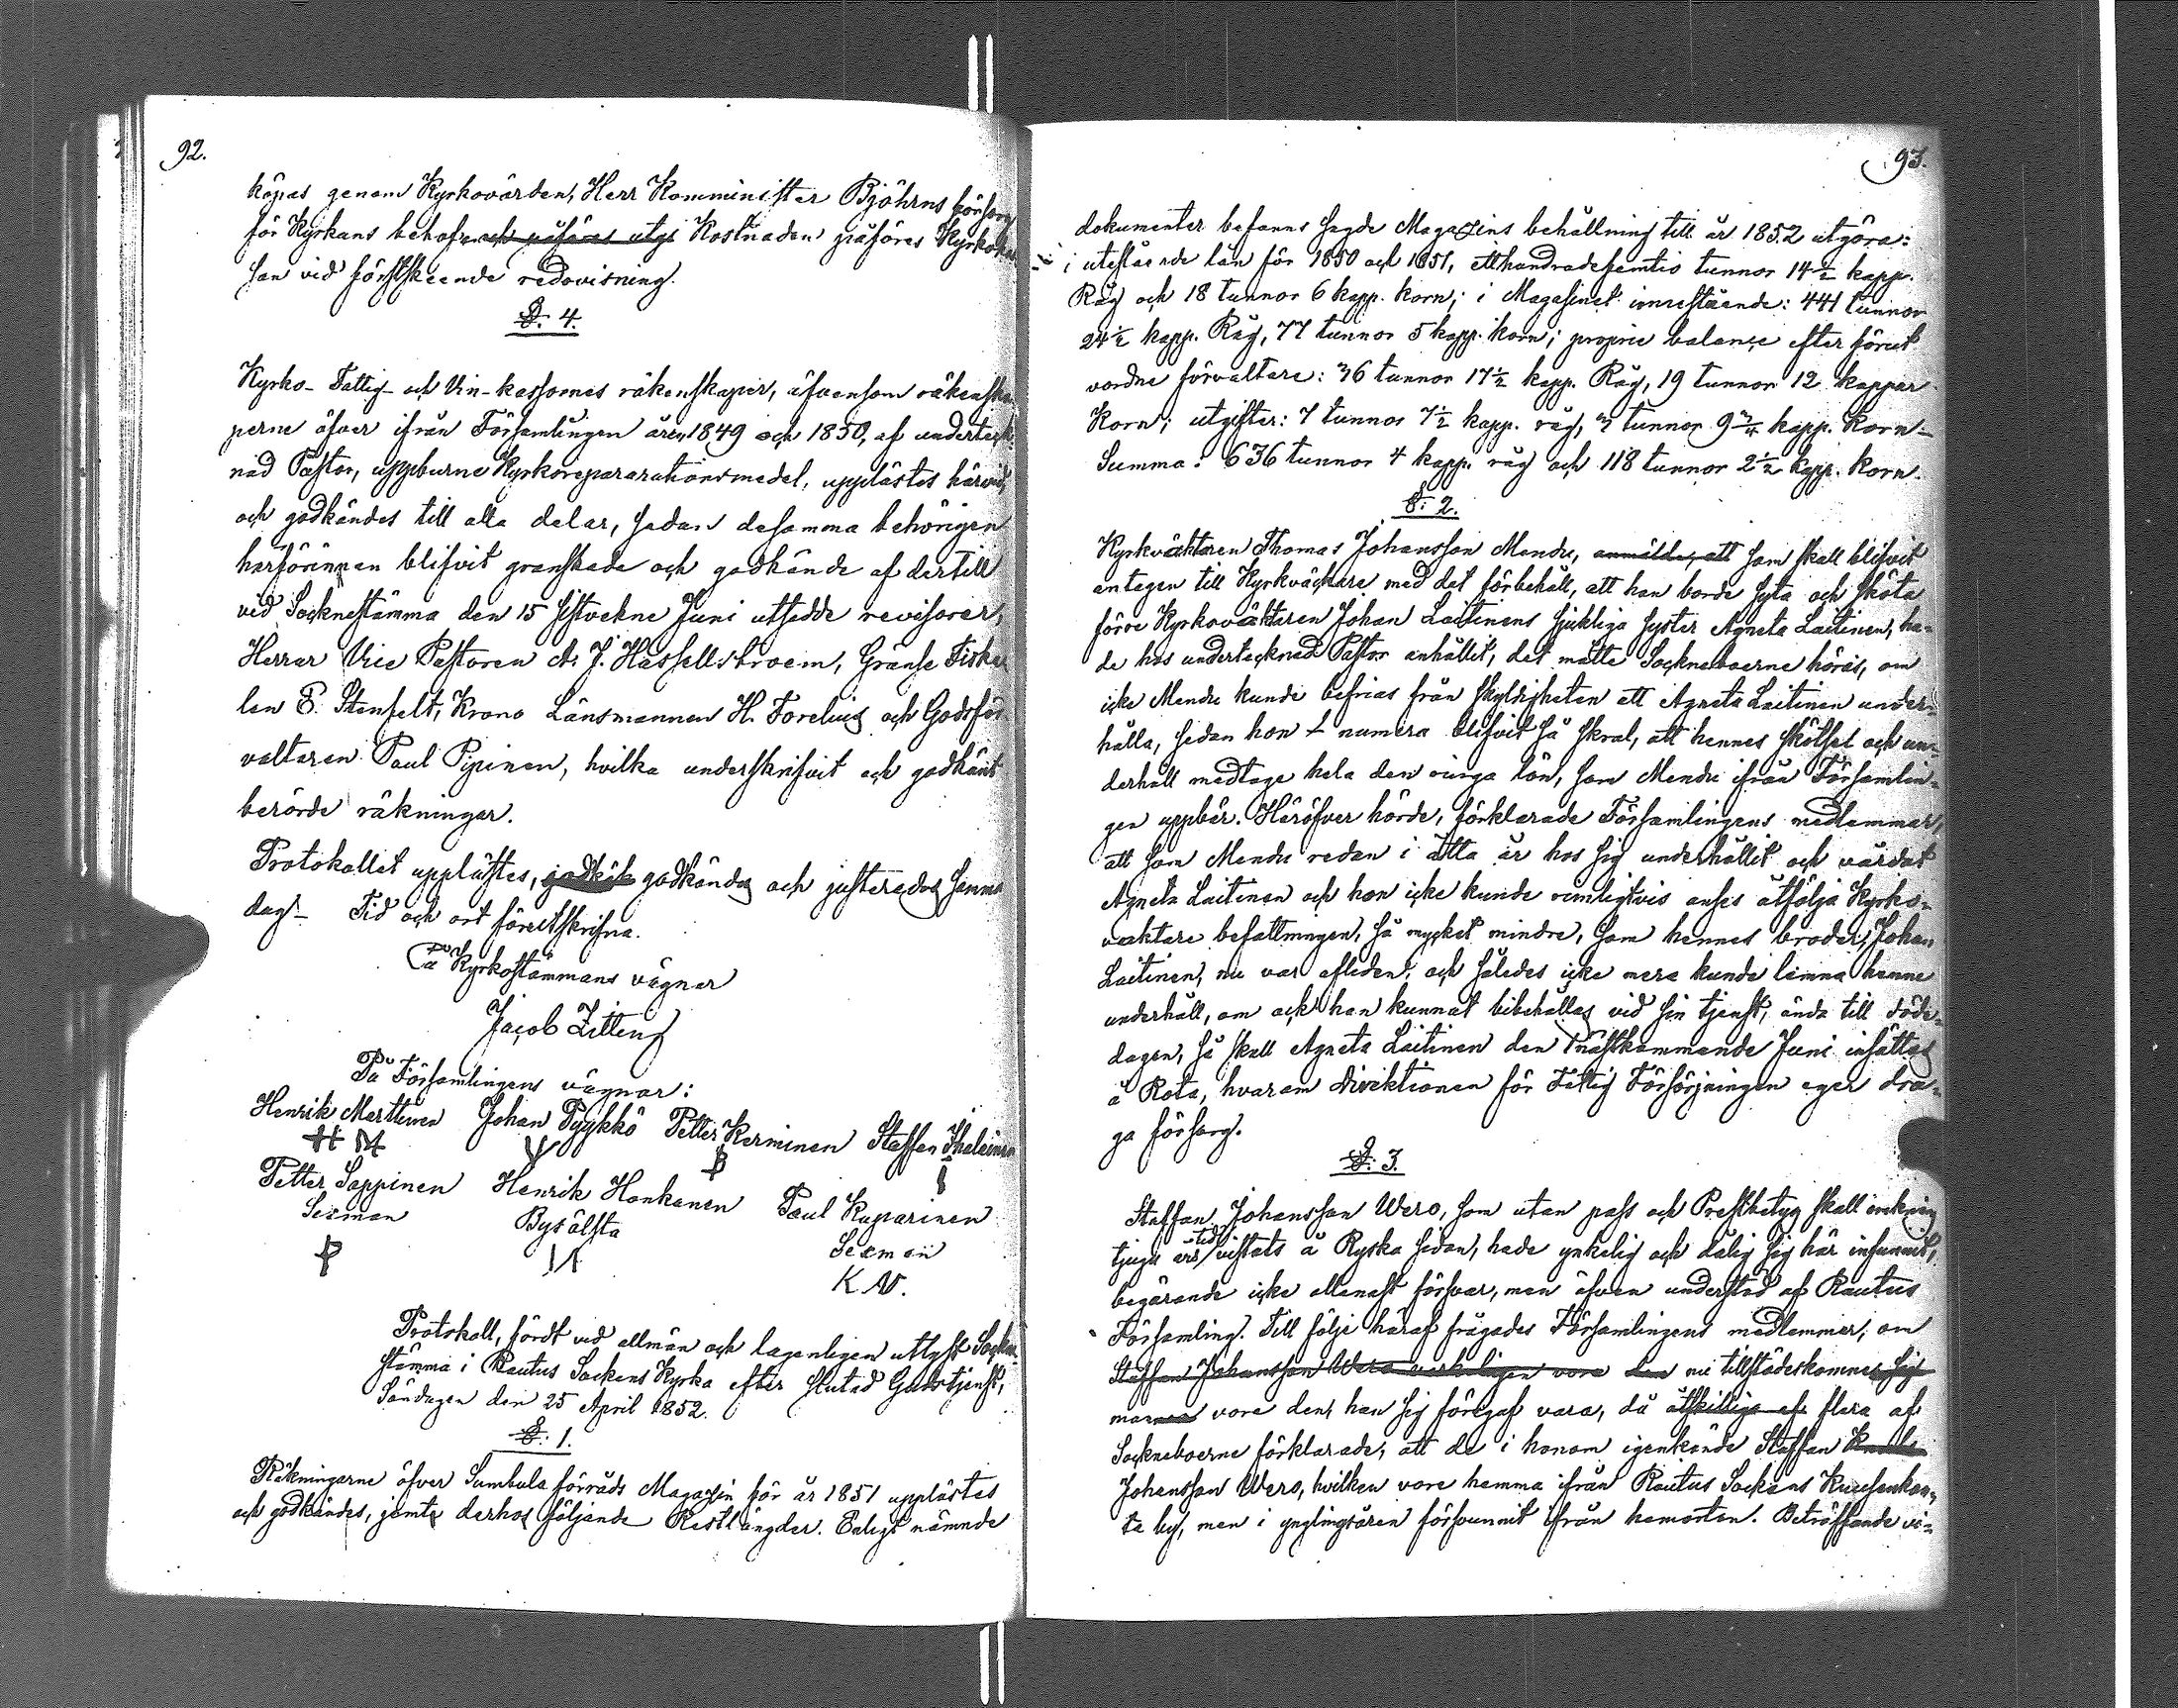 92.
köpas genom Kyrkovärden, Herr Komminister Björns försorg
för Kyrkans behof, och påföres utgif Kostnaden påföres Kyrkokas
san vid förstskeende redovisning.
§. 4.
Kyrko- Fattig- och Vin-kassornes räkenskaper, äfvensom räkenska
perne öfver ifrån Församlingen åren 1849 och 1850, af underteck
nad Pastor, uppburne Kyrkoreparationsmedel, upplästes härvid,
och godkändes till alla delar, sedan desamma behörigen
härförinnan blifvit granskade och godkände af dertill
vid Sockenstämma den 15 sistvekne Juni utsedde revisorer,
Herrar Vice Pastoren A. J. Hassellstroem, Gränse Fiska
len P. Stenfelt, Krono Länsmannen H. Forelius och Godsför
valtaren Paul Pipinen, hvilka underskrifvit och godkänt
berörde räkningar.
Protokollet upplästes, godkändes och justerades samma
dag. Tid och ort föreskrifna.
På Kyrkostämmans vägnar
Jacob Zitting
På Församlingens vägnar:
Henrik Marttinen Johan Pyykkö Petter Kerminen Staffan Ihalainen
H M
Petter Sappinen Henrik Honkanen Paul Kuparinen
Sexman Bysälsta Sexman
P K N.
Protokoll, fördt vid allmän och lagenligen utlyst Socken
stämma i Rautus Sockens Kyrka efter slutad Gudstjenst,
Söndagen den 25 April 1852.
§. 1.
Räkningarne öfver Sumbula förråds Magazin för år 1851 upplästes
och godkändes, jemte derhos följande Restlängder. Enligt nämnde
93.
dokumenter befanns sagde Magazins behållning till år 1852 utgöra:
i utestående lån för 1850 och 1851, etthundradefemtio tunnor 14 1/2 kapp.
Råg och 18 tunnor 6 kapp. korn; i Magasinet innestående: 441 tunnor
24 1/2 kapp. Råg, 77 tunnor 5 kapp. korn; proprie balance efter förut
vordne förvaltare: 36 tunnor 17 1/2 kapp. Råg, 19 tunnor 12 kappar
Korn; utgifter: 7 tunnor 7 1/2 kapp. råg, 3 tunnor 9 3/4 kapp. Korn-
Summa: 636 tunnor 4 kapp. råg och 118 tunnor 2 1/2 kapp. Korn.
§. 2.
Kyrkväktaren Thomas Johansson Mendu, anmälde, att som skall blifvit
antagen till Kyrkväktare med det förbehåll, att han borde syta och sköta
förre Kyrkoväktaren Johan Laitinens sjukliga syster Agneta Laitinen, ha-
de hos undertecknad Pastor anhållit, det måtte Sockneboerne höras, om
icke Mendu kunde befrias från skyldigheten att Agneta Laitinen under-
hålla, sedan hon numera blifvit så skral, att hennes skötsel och un-
derhåll medtage hela den ringa lön, som Mendu ifrån Församlin-
gen uppbär. Häröfver hörde, förklarade Församlingens medlemmar,
att som Mendu redan i åtta år hos sig underhållit och vårdat
Agneta Laitinen och hon icke kunde rimligtvis anses åtfölja Kyrko-
väktare befattningen, så mycket mindre, som hennes broder, Johan
Laitinen, nu var afliden, och således icke mera kunde lemna henne
underhåll, om ock han kunnat bibehållas vid sin tjenst, ända till döde-
dagen, så skall Agneta Laitinen den 1 nästkommande Juni insättas
å Rota, hvarom Direktionen för Fattig Försörjningen eger dra-
ga försorg.
§. 3.
Staffan Johansson Wero, som utan pass och Prestbetyg skall omkring
tjugu års tid vistats å Ryska sidan, hade ynkelig och dålig sig här infunnit,
begärande icke allenast försvar, men äfven understöd af Rautus
Församling. Till följe häraf frågades Församlingens medlemmar, om
Staffan Johansson Wero verkeligen vore den nu tillstädeskomne sig
vore den, han sig föregaf vara, då åtskillige af flera af
Sockneboerne förklarade, att de i honom igenkände Staffan
Johansson Wero, hvilken vore hemma ifrån Rautus Sockens Kuusenkan-
ta by, men i ynglingsåren försvunnit ifrån hemorten. Beträffande vi-